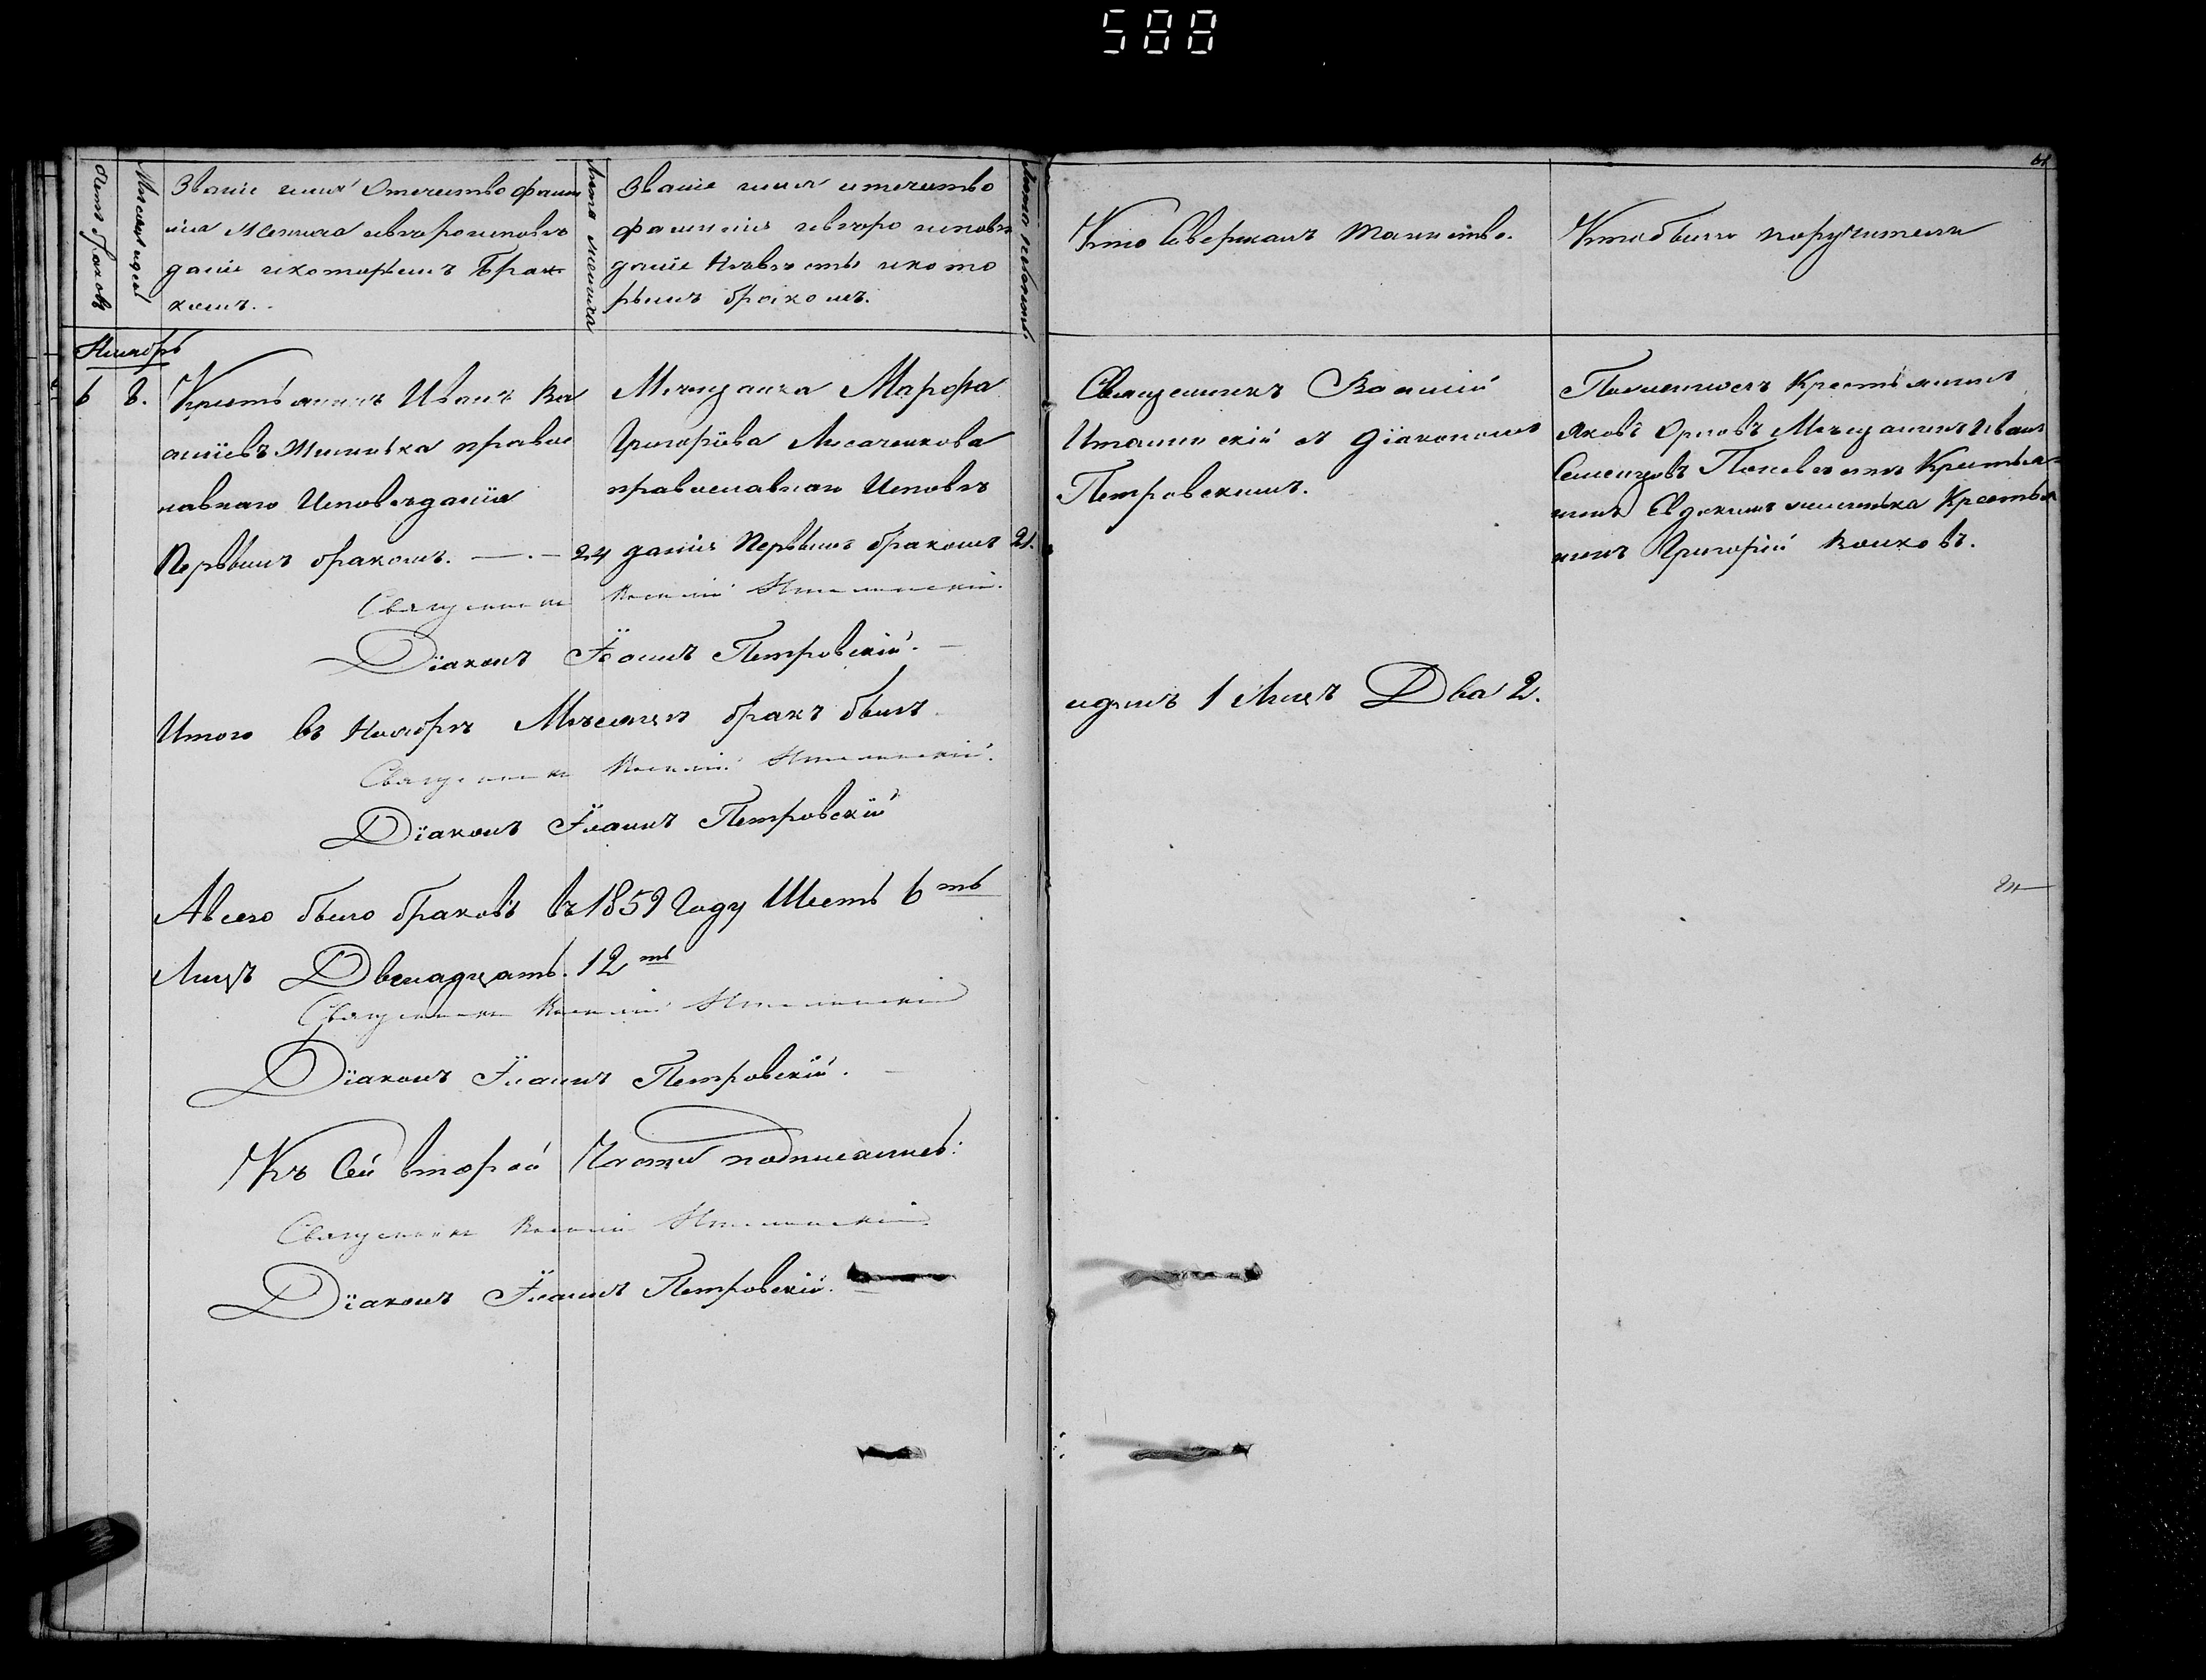 588
61
Счетъ браковъ
Месяцъ и день
Званіе имя Отечитво фами
лія Жениха и вкаро исповѣ
даніе и которымъ Брак
комъ.
Лета жениха
Званіе имя итечитво
фамилія и вкаро исповѣ
даніе Нѣвѣсты и кото
рымъ бракомъ.
Лета невесты
Кто Совершалъ таинство.
Кто были поручители
Ноябрь
6 8. Крестьянинъ Иванъ Ва
силіевъ православ
навнаго Исповѣданія
Первымъ бракомъ. — . — 24
Мещанка Марфа
Григоріева Лисаченкова
православнаго Исповѣ
данія Первымъ бракомъ 21.
Священникъ Василій
съ Діакономъ
Петровскимъ.
Крестьянинъ
Яковъ Орловъ Мещанинъ Иванъ
Семенцовъ По невестѣ Крестья-
нинъ Евдокимъ Крестья
нинъ Григорій Волковъ.
Священникъ Василій
Діаконъ Іоаннъ Петровскій. —
Итого въ Ноябрѣ Месяцѣ бракъ былъ
идинъ 1 Лицъ Два 2.
Священникъ Василій
Діаконъ Іоаннъ Петровскій
А всего было браковъ въ 1859 Году Шесть 6 ть
Лицъ Двенадцать. 12 ть
Священникъ Василій
Діаконъ Іоаннъ Петровскій.
Къ Сей второй Части подписались:
Священникъ Василій
Діаконъ Іоаннъ Петровскій.